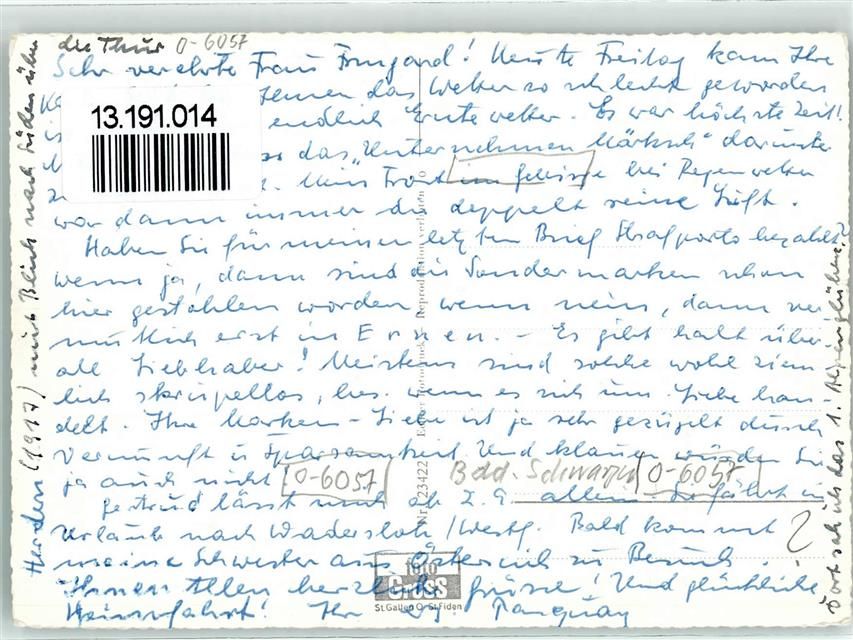 die Thur 0-6057
Sehr verehrte Frau Irmgard! Heute Freitag kam Ihre
das Wetter so schlecht geworden
endlich Erntewetter. Es war höchste Zeit!
13.191.014
so das „Unternehmen Märksch" darunter
Mein Front im Gebisse bei Regenwetter
war dann immer die doppelt seine Luft.
Haben Sie für meinen letzten Brief Strafporto bezahlt?
wenn ja, dann sind die Sondermarken schon
hier gestohlen worden, wenn nein, dann ver-
mutlich erst in Essen. - Es gibt halt über-
all Liebhaber! Meistens sind solche wohl ziem-
lich skrupellos, bes. wenn es sich um Liebe han-
delt. Ihre Marken-Liebe ist ja sehr gezügelt durch
Vernunft u. Sparsamkeit. Und klauen würden Sie
ja auch nicht 0-6057 Bdd. 0-6057
Gertrud lässt mich ab z. Z. allein. Sie fährt in
Urlaub nach Wadersloh/Westf. Bald kommt
meine Schwester aus Österreich zu Besuch.
Ihnen Allen herzliche Grüsse! Und glückliche
Heimfahrt! Ihr
foto Gross
St. Gallen O-St. Fiden
Nr. 23422 Echte Photo Reproduktion verboten
Herden (1917) mit Blick nach Süden über
Dort sah ich das 1. Alpenglühen!